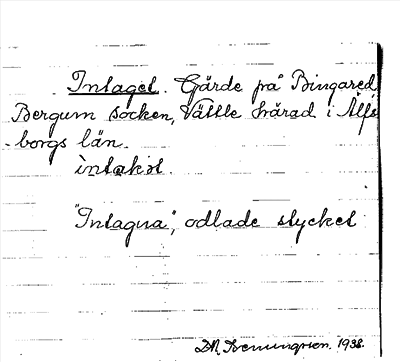 Intaget. Gärde på Bingared,
Bergum socken, Vättle härad i Älfs-
borgs län.
intakət.
"Intagna", odlade stycket
1938.